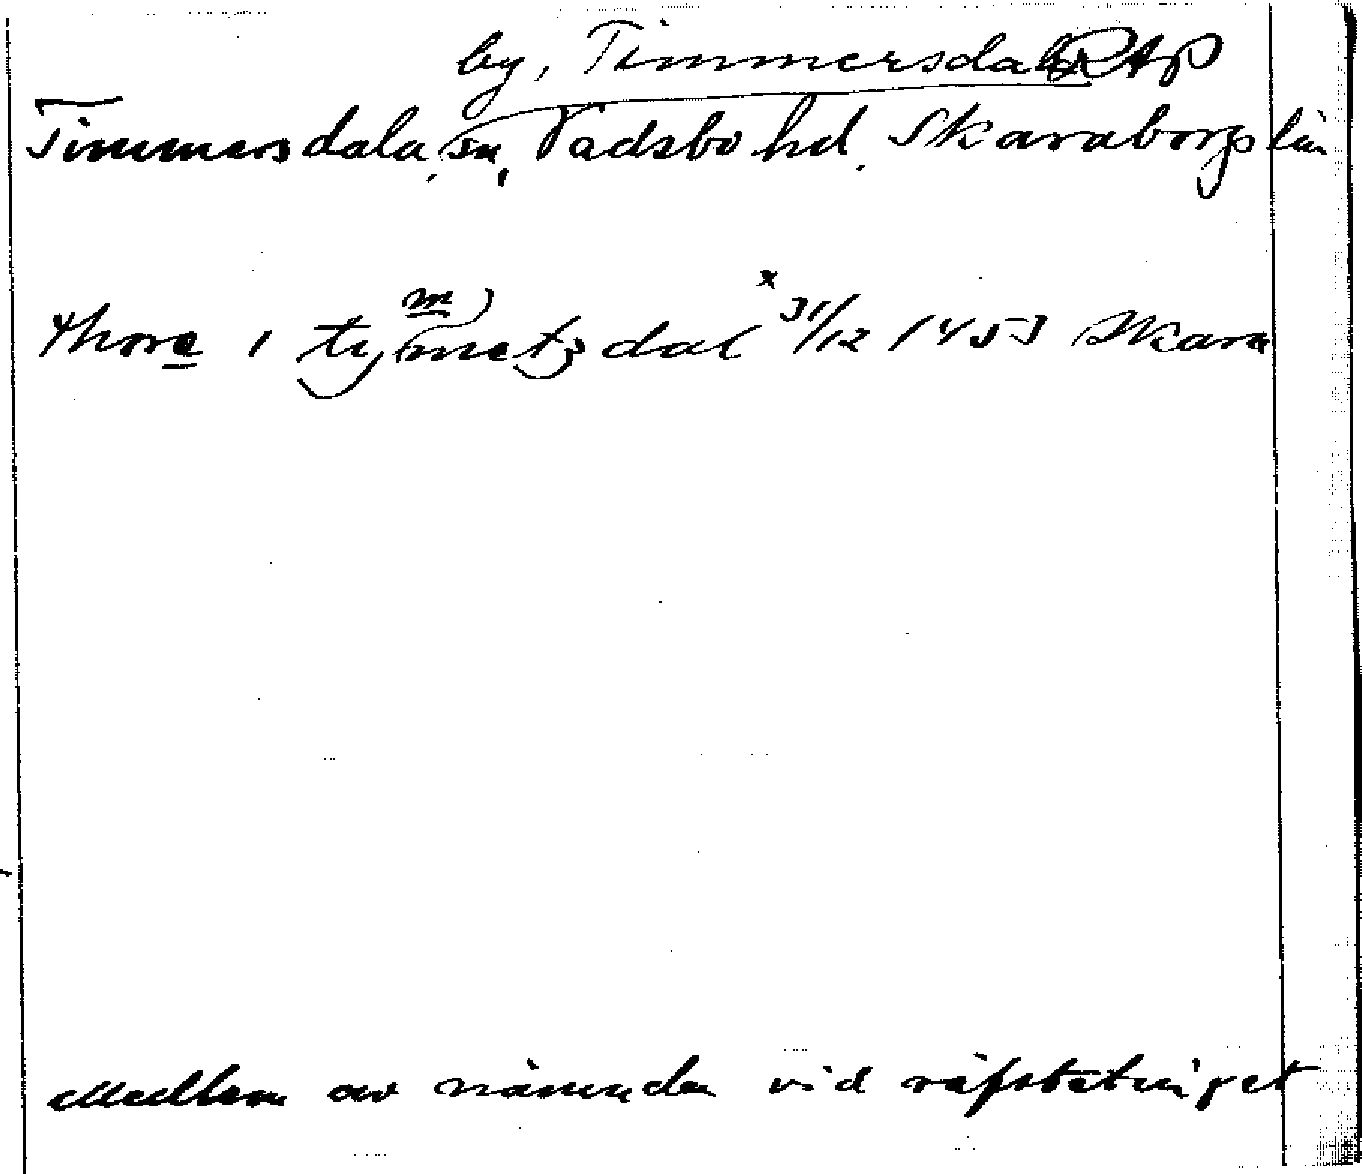 by, Timmersdala RAP
Timmersdala, sn, Vadsbo hd. Skaraborgs län
m)
thore i tymetzdal x 31/12 1453 Skara
Medlem av nämnden vid räfstetinget